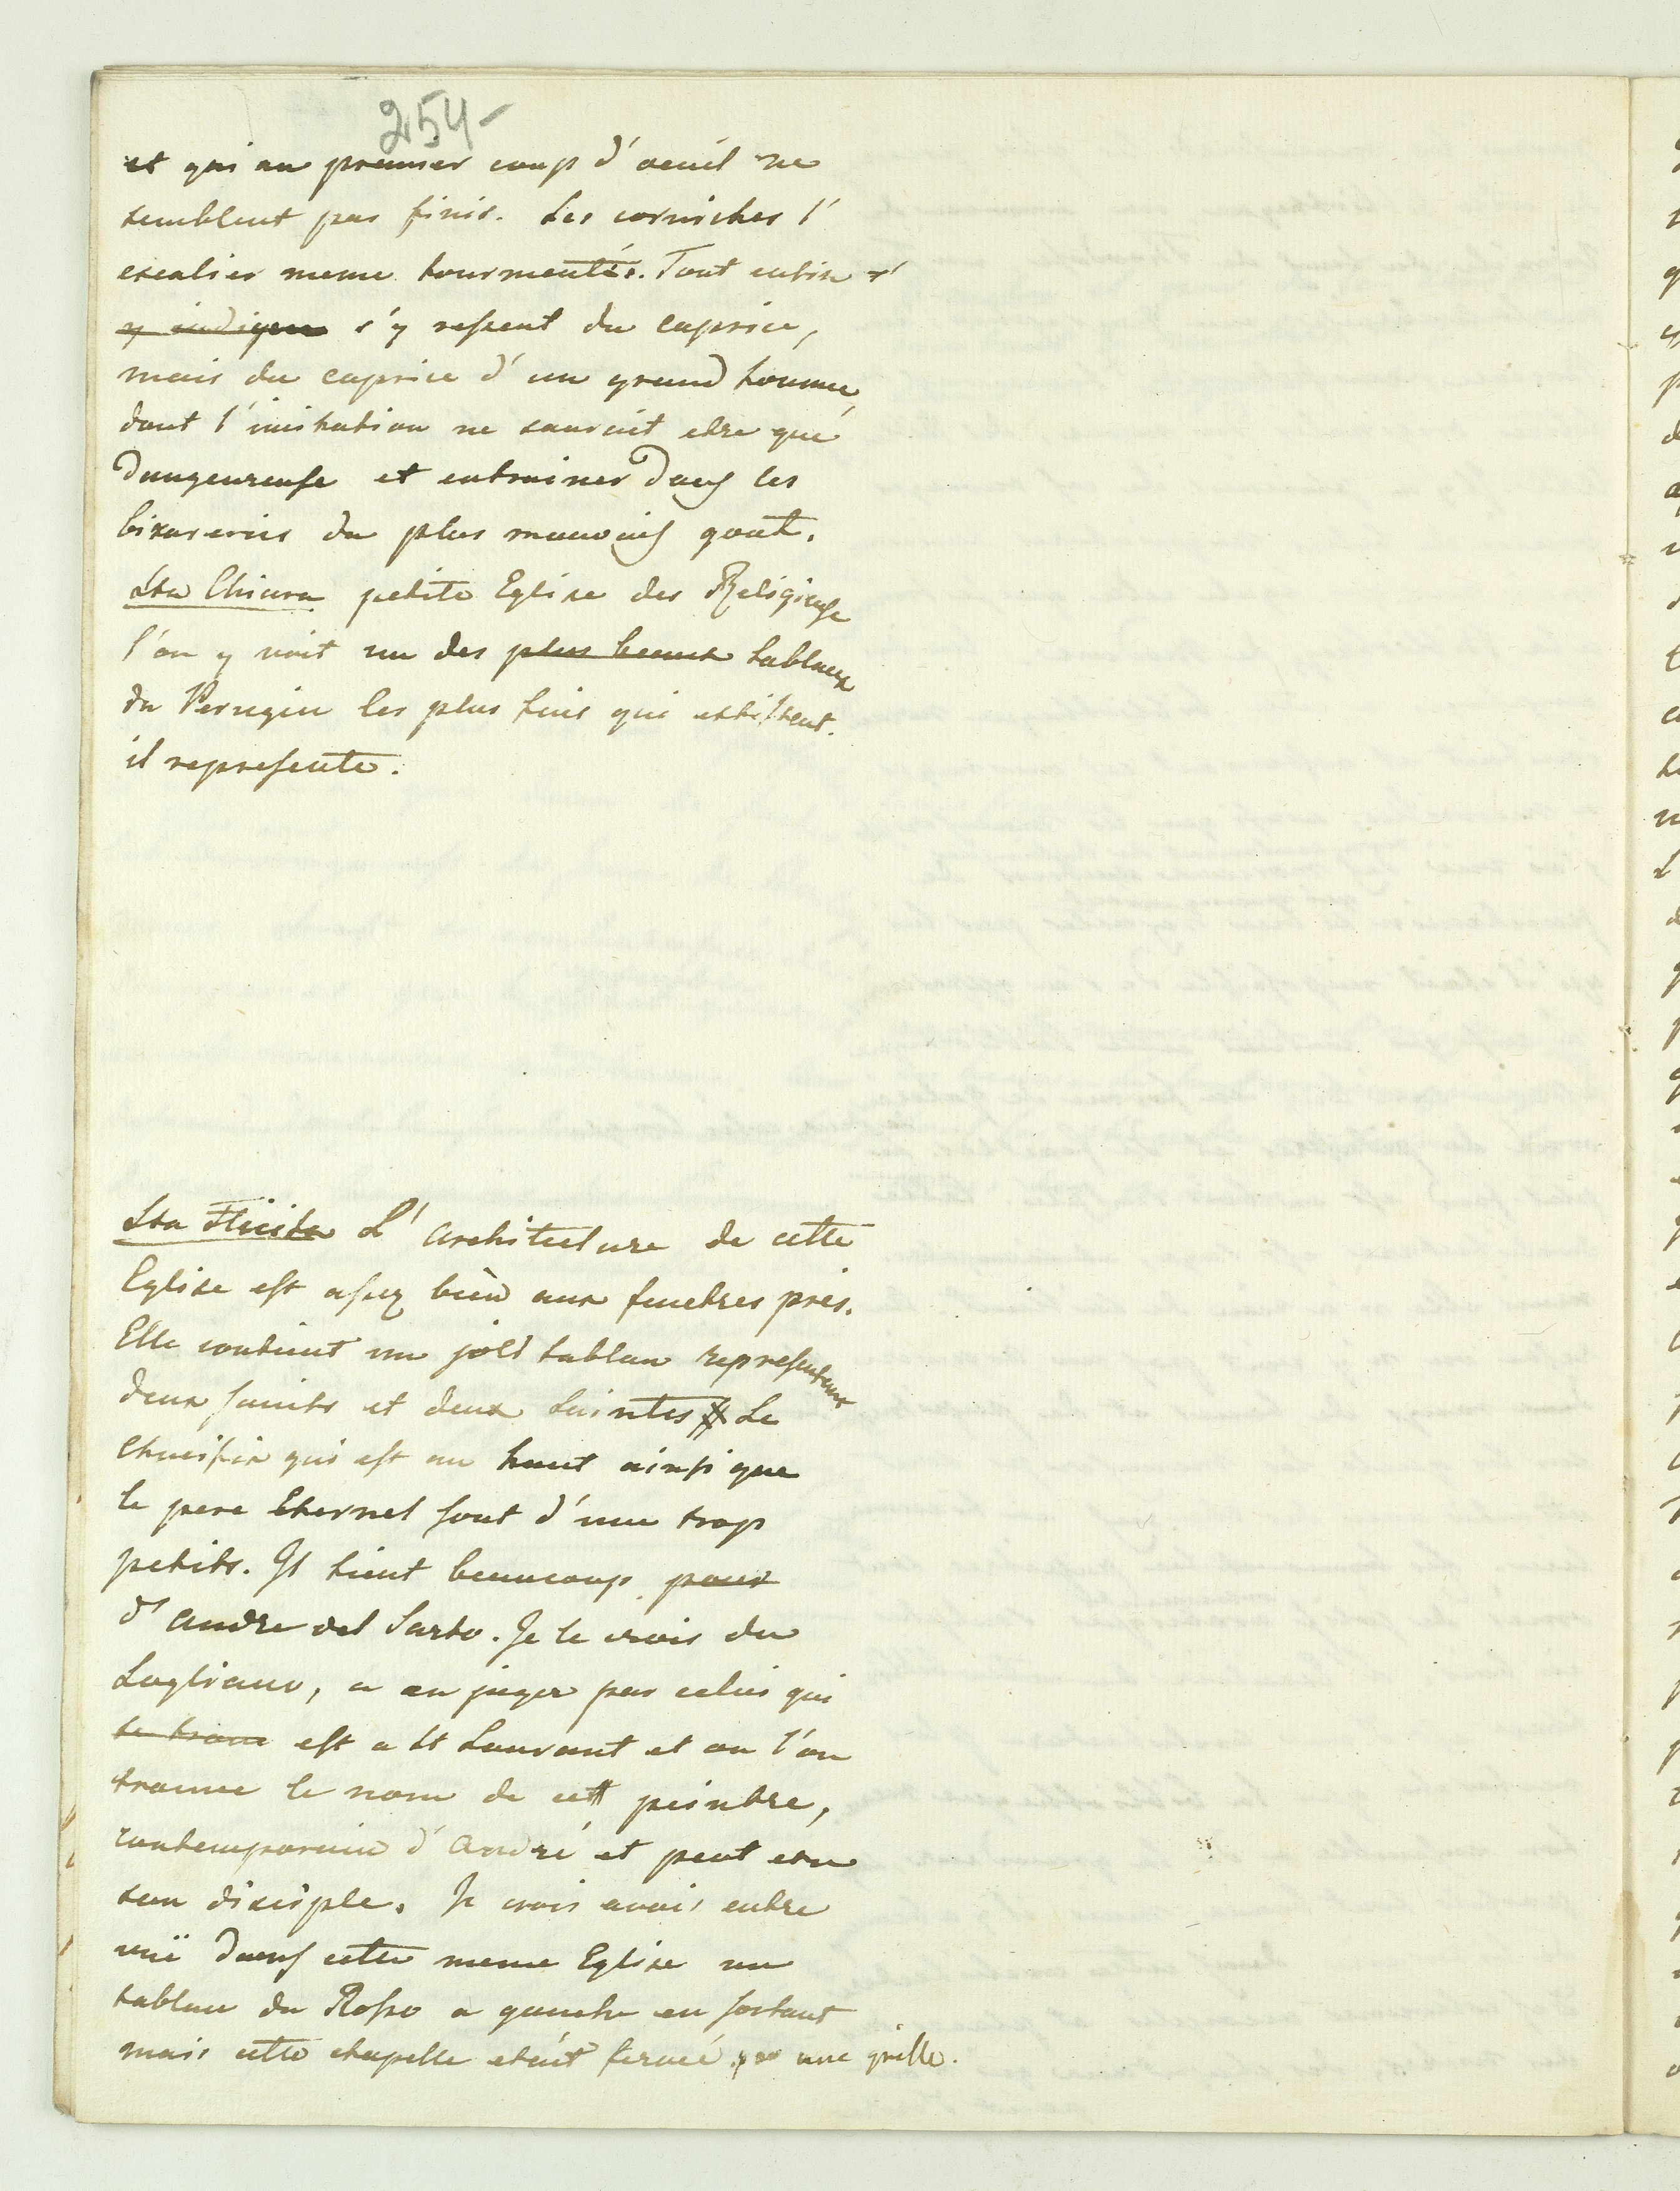 254-
et qui au premier coup d'oeuil ne
semblent pas finis. Les corniches l'
escalier meme tourmentés. Tout enfin s'
y indique s'y resent du caprice,
mais du caprice d'un grand homme,
dont l'imitation ne sauroit etre que
Dangeureuse et entrainer dans les
bizareries du plus mauvais gout.
Sta Chiara petite Eglise des Religieuse
l'on y voit un des plus beaux tableaux
du Perugin les plus finis qui existent.
il represente.
Sta Flicita L'architecture de cette
Eglise est assez bien aux fenetres près.
Elle contient un joli tableau representant
deux saints et deux Saintes Le
Crucifix qui est au haut ainsi que
le pere Eternel sont d'une trop
petits. Il tient beaucoup pour
d'Andre del Sarto. Je le crois du
Sogliano, a en juger par celui qui
se trouve est a St Laurant et ou l'on
trouve le nom de cett peintre,
contemporain d'André et peut etre
son disciple. Je crois avoir entre
vuë dans cette meme Eglise un
tableau du Rosso a gauche en sortant
mais cette chapelle etoit fermée par une grille.